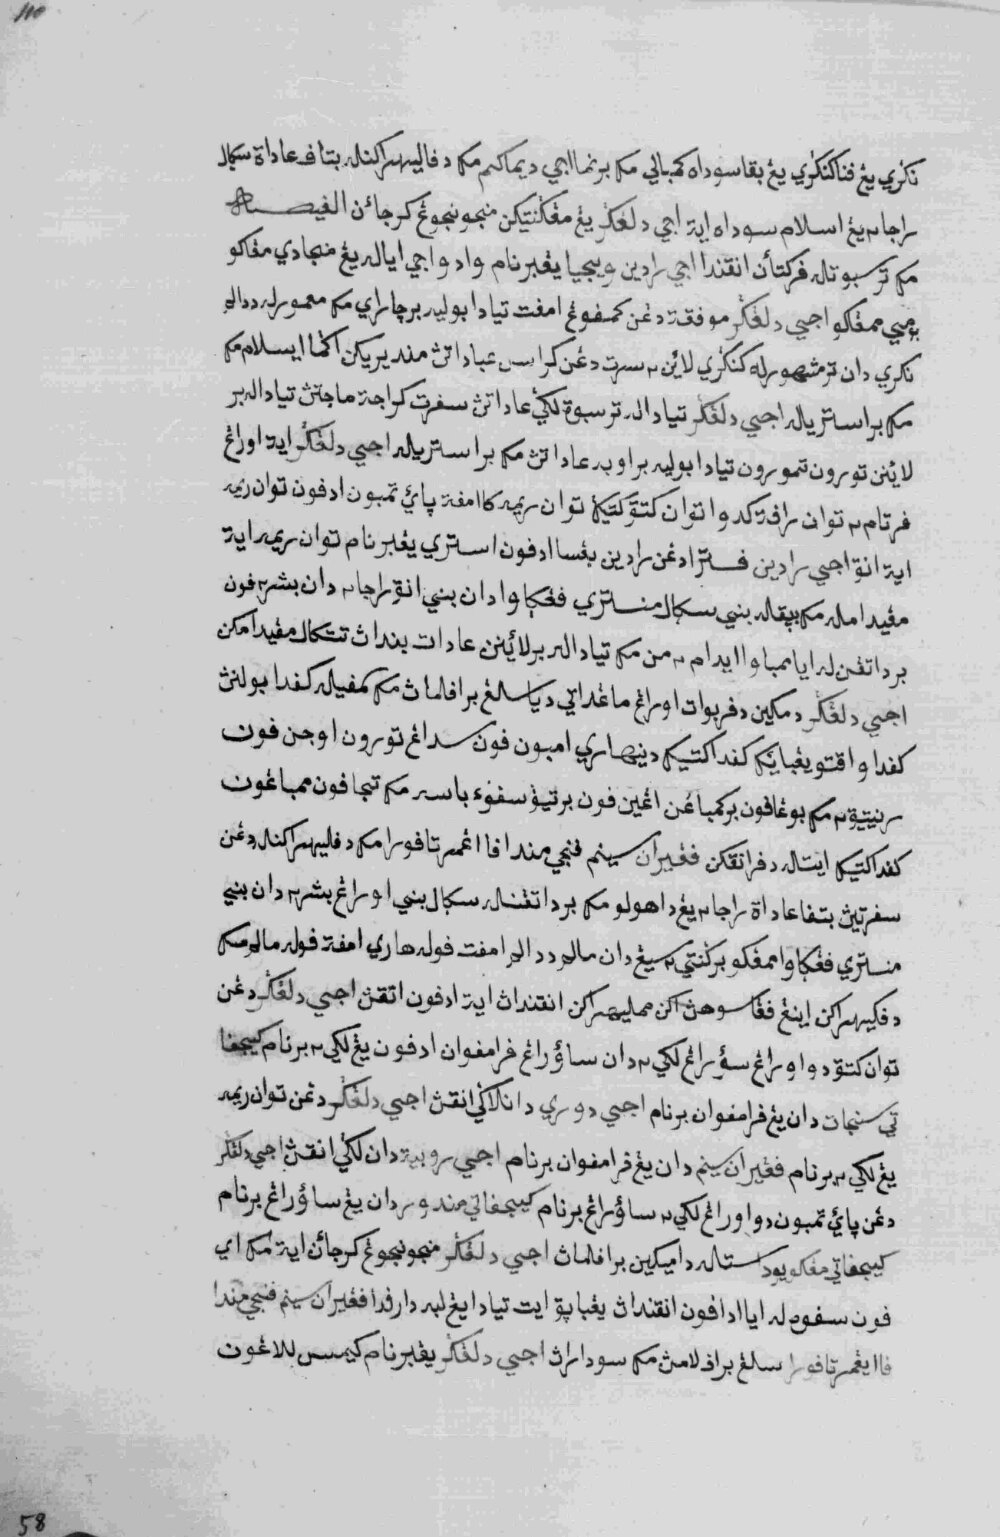 110
نݢري يڠ فتاكنݢري يڠ بقاسوداه كمبالي مک برنما اجي ديماكم مک دفاليهراكنله بتاف عاداة سكال
راجا٢ يڠ اسلام سوداه ايت اجي دلڠݢر يڠ مڠݢنتيكن منجونجوڠ كرجائن القصه
مک ترسبوتله فركتأن انقندا اجي رادين ويجيا يڠبرنام وادو اجي ايالله يڠ منجادي مڠكو
بومي ممڠكو اجي دلڠݢر موفقة دڠن كمفوڠ امفت تيادا بوليه برچاري مک معمورله ددالم
نݢري دان ترمشهورله كنݢري لائن٢ سرت دڠن كراس عباداتڽ منديريكن اݢما ايسلام مک
مک براستريله اجي دلڠݢر تيادله ترسبوة لݢي عاداتڽ سفرت كراجة ماجتڽ تيادله بر
لائنن تورون تمورون تيادا بوليه براوبه عاداتڽ مک براستريله اجي دلڠݢر ايت اورڠ
فرتام٢ توان راڤة كدوا توان كتوة كتيݢ توان ريمه كاامفت ڤائي تمبون ادفون توان ريمه
ايت انق اجي رادين فسترا دڠن رادين بڠسا ادفون استري يڠبرنام توان ريمه ايت
مڠيدامله مک بيقله بني سكال منتري فڠݢاوا دان بني انق راجا٢ دان بشر٢ فون
برداتڠنله اياممباوا ايدام٢من مک تيادله برلائنن عادت بنداڽ تتكال مڠيدامكن
اجي دلڠݢر دمكين دفربوات اورڠ ماڠداتي دياسالڠ برافلماڽ مک كمفيله كفدا بولنڽ
كفدا واقتو يڠبايك كفدا كتيك دنيهاري امبون فون سداڠ تورون اوجن فون
رنيتيق٢ مک بوڠافون بركمباڠن اڠين فون برتيؤ سفوء باسه مک تيجا فون ممباڠون
كفدا كتيك ايتله دفرانقكن فڠيران سينم فنجي مندافا اڠمرتافورا مک دفليهراكنله دڠن
سفرتيڽ بتفا عاداة راجا٢ يڠ داهولو مک برداتڠنله سكال بني اورڠ بشر٢ دان بني
منتري فڠݢاوا ممڠكو برݢنتي٢ سيڠ دان مالم ددالم امفت فوله هاري امفت فوله مالم مک
دفكيهراكن اينڠ فڠاسوهڽ اكن مملهراكن انقنداڽ ايت ادفون انقڽ اجي دلڠݢر دڠن
توان كتوة دوا اورڠ سؤرڠ لكي٢ دان ساؤرڠ فرامفوان ادفون يڠ لكي٢ برنام كيجفا
تي سنجات دان يڠ فرامفوان برنام اجي دوري دانلاݢي انقڽ اجي دلڠݢر دڠن توان ريمه
يڠ لكي٢ برنام فڠيران سينم دان يڠ فرامفوان برنام اجي روبية دان لݢي انقڽ اجي دلڠݢر
دڠن ڤائي تمبون دوا اورڠ لكي٢ ساؤرڠ برنام كيجفاتي مندورا دان يڠ ساؤرڠ برنام
كيجفاتي مڠكويودا ستله دميكين برافلماڽ اجي دلڠݢر منجونجوڠ كرجائن ايت مک اي
فون سفوه له ايا ادافون انقنداڽ يڠباڽق ايت تيادا يڠ لبه دارفدا فڠيران سينم فنجي مندا
فا ايڠمرتافورا سلڠ براف لامڽ مک سوداراڽ اجي دلڠݢر يڠبرنام كيمس للاڠون
58